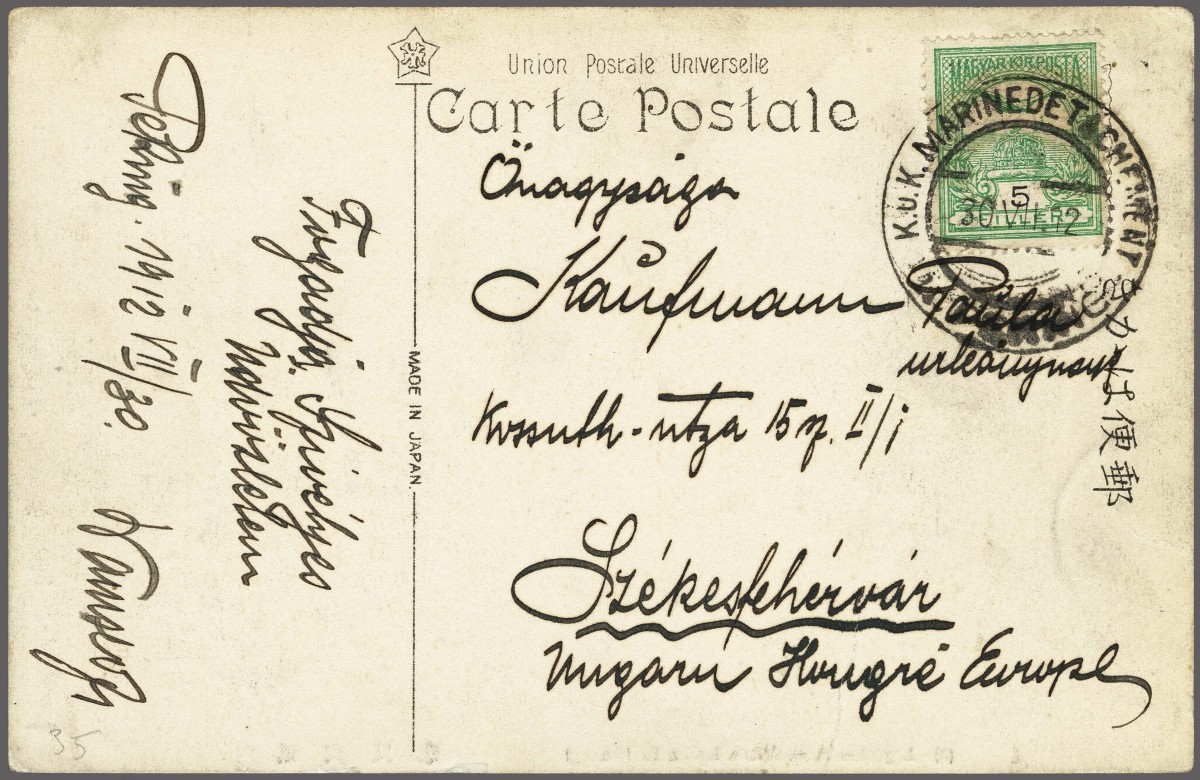 Union Postale Universelle
Carte Postale
MAGYAR KIR. POSTA
5
FILLÉR
K.u.K. MARINEDETACHEMENT
30.VII.12
Őnagysága
Kaufmann Paula
urleánynak
Kossuth-utza 15 sz. II/i
Székesfehérvár
Ungarn Hongré Europe
きかは便郵
MADE IN JAPAN.
Peking. 1912 VII/30.
Fogadja szívélyes
üdvözletem
35